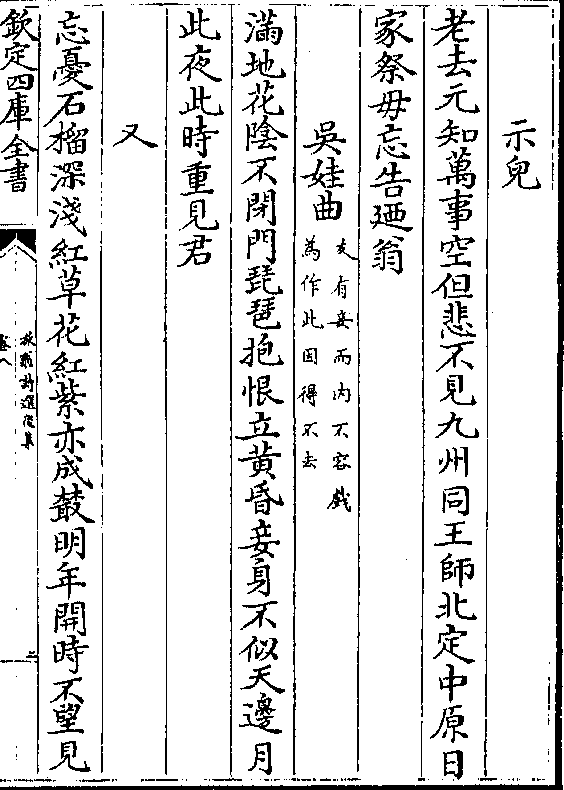 示兒
老去元知萬事空但悲不見九州同王師北定中原日
家祭毋忘告廼翁
吳娃曲
友有妾而内不容戲
為作此因得不去
滿地花陰不閉門琵琶抱恨立黄昏妾身不似天邊月
此夜此時重見君
又
忘憂石榴深淺紅草花紅紫亦成叢明年開時不望見
欽定四庫全書
放翁詩選後集
卷八
二